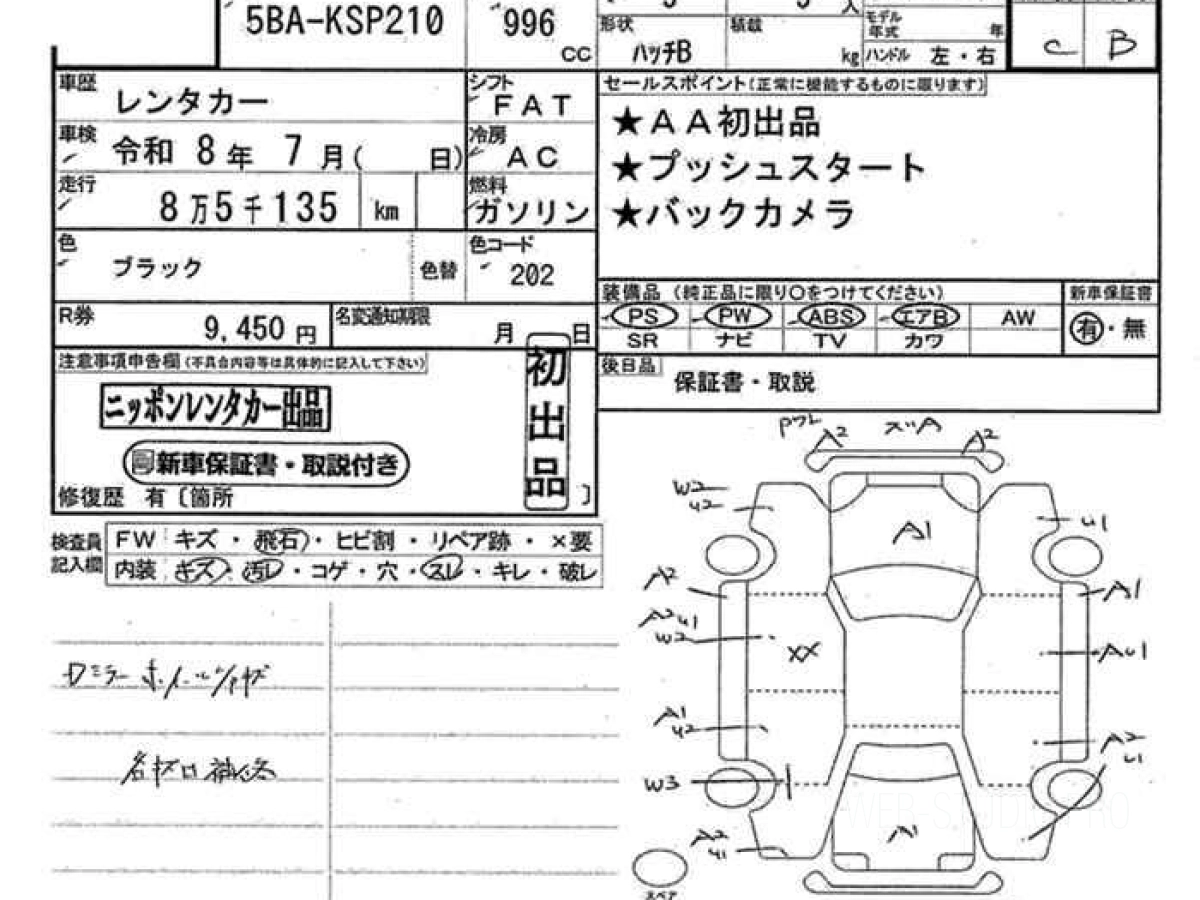 5BA-KSP210
996
CC
形状
ハッチB
積載
kg
人
モデル年式
年
ハンドル 左・右
C B
車歴
レンタカー
シフト
FAT
車検
令和 8年 7月( 日)
冷房
AC
走行
8万5千135 km
燃料
ガソリン
色
ブラック
色替
色コード
202
R券
9,450 円
名変通知期限
月 日
セールスポイント(正常に機能するものに限ります)
★AA初出品
★プッシュスタート
★バックカメラ
装備品 (純正品に限り○をつけてください)
PS PW ABS エアB AW
SR ナビ TV カワ
新車保証書
有・無
後日品
保証書・取説
注意事項申告欄(不具合内容等は具体的に記入して下さい)
ニッポンレンタカー出品
新車保証書・取説付き
初出品
修復歴 有〔箇所 〕
検査員記入欄
FW キズ・飛石・ヒビ割・リペア跡・×要
内装 キズ・汚レ・コゲ・穴・スレ・キレ・破レ
A2
A2
W2
U2
A1
U1
A2
A1
A2U1
W2
XX
AU1
A1
U2
A2
U1
W3
A2
U1
A1
スペア
WEB-STUDIO.PRO